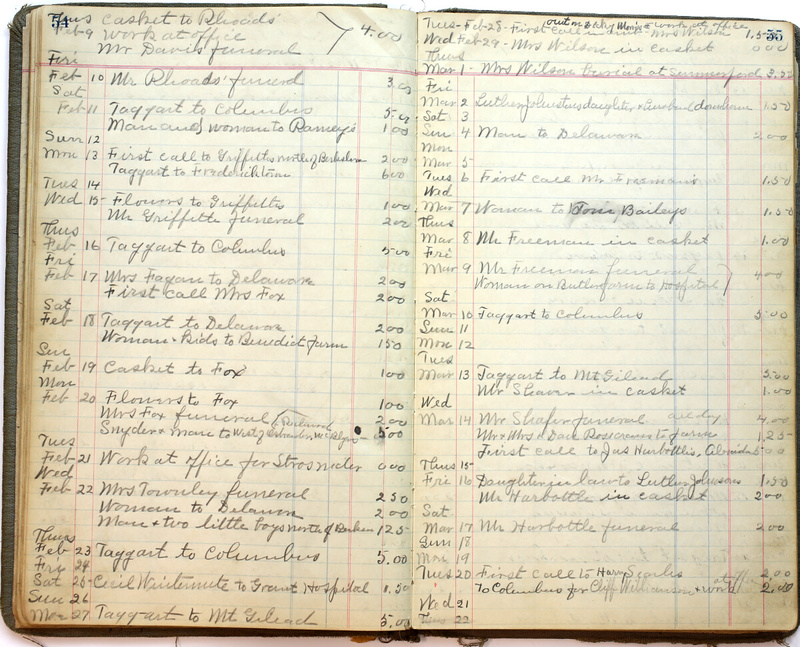 54
Thus Casket to Rhoads'
Feb 9 Work at office 4.00
Mr Davis funeral
Fri
Feb 10 Mr Rhoads' funeral 3.00
Sat
Feb 11 Taggart to Columbus 5.00
Man and woman to Ramey's 1 00
Sun 12
Mon 13 First call to Griffiths north of Berkshire 2 00
Taggart to Fredericktown 6 00
Tues 14
Wed 15 Flowers to Griffiths 1 00
Mr Griffith funeral 2 00
Thus
Feb 16 Taggart to Columbus 5 00
Fri
Feb 17 Mrs Fagan to Delaware 2 00
First Call Mrs Fox 2 00
Sat
Feb 18 Taggart to Delaware 2 00
Woman + kids to Benedict farm 1 50
Sun
Feb 19 Casket to Fox 1 00
Mon
Feb 20 Flowers to Fox 1 00
Mrs Fox funeral 2 00
Snyder + man to West of 5 00
Tues
Feb 21 Work at office for Strosnider 0 00
Wed
Feb 22 Mrs Townley funeral 2 50
Woman to Delaware 2 00
Man + two little boys north of 1 25
Thurs
Feb 23 Taggart to Columbus 5.00
Fri 24
Sat 25 Cecil Wintermute to Grant Hospital 1.50
Sun 26
Mon 27 Taggart to Mt Gilead 5.00
55
Tues - Feb - 28 - First call Mrs Wilson 1.50
work at office
Wed Feb - 29 - Mrs Wilson in casket 0 00
Thus
Mar 1 - Mrs Wilson burial at Summerford 3.50
Fri
Mar 2 Luther Johnstons daughter + husband 1.50
Sat 3
Sun 4 Man to Delaware 2 00
Mon
Mar 5
Tues 6 First call Mr Freeman 1.50
Wed
Mar 7 Woman to Tom Baileys 1.50
Thus
Mar 8 Mr Freeman in casket 1.00
Fri
Mar 9 Mr Freeman funeral 4 00
Woman on Butler farm to Hospital
Sat
Mar 10 Taggart to Columbus 5.00
Sun 11
Mon 12
Tues
Mar 13 Taggart to Mt Gilead 5.00
Mr in casket 1.00
Wed
Mar 14 Mr Shafer funeral all day 4.00
Mr + Mrs + Dave Rosecrans to farm 1.25
First call to Jas Harbottles,
Thus 15
Fri 16 Daughter in law to Luther Johnsons 1.50
Mr Harbottle in casket 2 00
Sat
Mar 17 Mr Harbottle funeral 2 00
Sun 18
Mon 19
Tues 20 First call to Harry Searles 2.00
To Columbus for Cliff Williamson + work at office 2.00
Wed 21
Thus 22